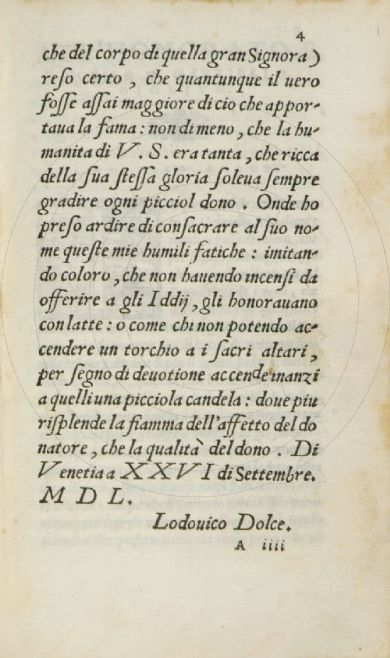 4
che del corpo di quella gran Signora)
reso certo, che quantunque il uero
fosse assai maggiore di cio che appor-
taua la fama: non di meno, che la hu-
manita di V. S. era tanta, che ricca
della sua stessa gloria soleua sempre
gradire ogni picciol dono. Onde ho
preso ardire di consacrare al suo no-
me queste mie humili fatiche: imitan-
do coloro, che non hauendo incensi da
offerire a gli Iddij, gli honorauano
con latte: o come chi non potendo ac-
cendere un torchio a i sacri altari,
per segno di deuotione accende inanzi
a quelli una picciola candela: doue piu
risplende la fiamma dell'affetto del do
natore, che la qualità del dono. Di
Venetia a XXVI di Settembre.
M D L.
Lodouico Dolce.
A iiii